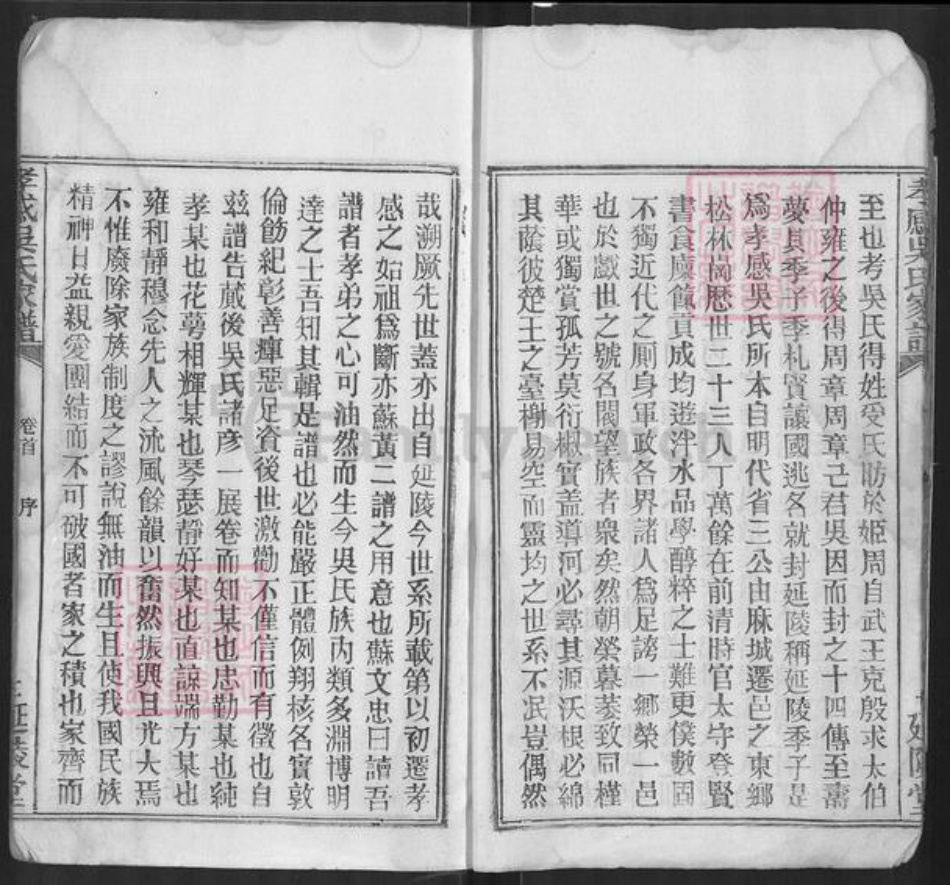 孝感吳氏家譜
延陵堂
至也考吳氏得姓受氏昉於姬周自武王克殷求太伯
仲雍之後得周章周章已君吳因而封之十四傳至壽
夢其季子季札賢讓國逃名就封延陵稱延陵季子是
爲孝感吳氏所本自明代省三公由麻城遷邑之東鄉
松林崗歷世二十三人丁萬餘在前清時官太守登賢
書食廩餼貢成均遊泮水品學醇粹之士難更僕數固
不獨近代之厠身軍政各界諸人爲足誇一鄉榮一邑
也於戲世之號名閥望族者衆矣然朝榮暮萎致同槿
華或獨賞孤芳莫衍椒實盖導河必尋其源沃根必綿
其蔭彼楚王之臺榭易空而靈均之世系不泯豈偶然
哉溯厥先世蓋亦出自延陵今世系所載第以初遷孝
感之始祖爲斷亦蘇黃二譜之用意也蘇文忠曰讀吾
譜者孝弟之心可油然而生今吳氏族內類多淵博明
達之士吾知其輯是譜也必能嚴正體例翔核名實敦
倫飭紀彰善癉惡足資後世激勸不僅信而有徵也自
茲譜告蕆後吳氏諸彥一展卷而知某也忠勤某也純
孝某也花萼相輝某也琴瑟靜好某也直諒端方某也
雍和靜穆念先人之流風餘韻以奮然振興且光大焉
不惟廢除家族制度之謬說無油而生且使我國民族
精神日益親愛團結而不可破國者家之積也家齊而
孝感吳氏家譜
卷首
序
二延陵堂